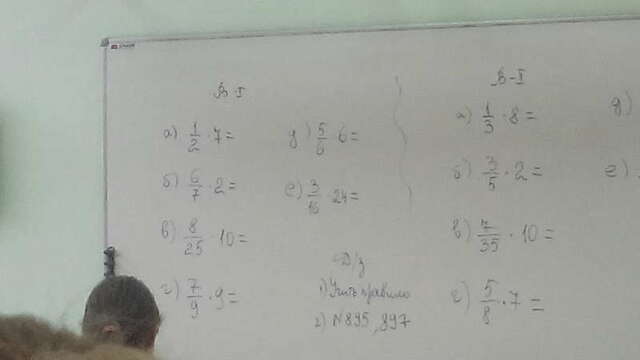 В-I
а) 1/2 · 7 =
б) 6/7 · 2 =
в) 8/25 · 10 =
г) 7/9 · 9 =
д) 5/6 · 6 =
е) 3/16 · 24 =
Д/з
1) Учить правило
2) N 895, 897
В-I
а) 1/3 · 8 =
б) 3/5 · 2 =
в) 7/35 · 10 =
г) 5/8 · 7 =
д)
е)